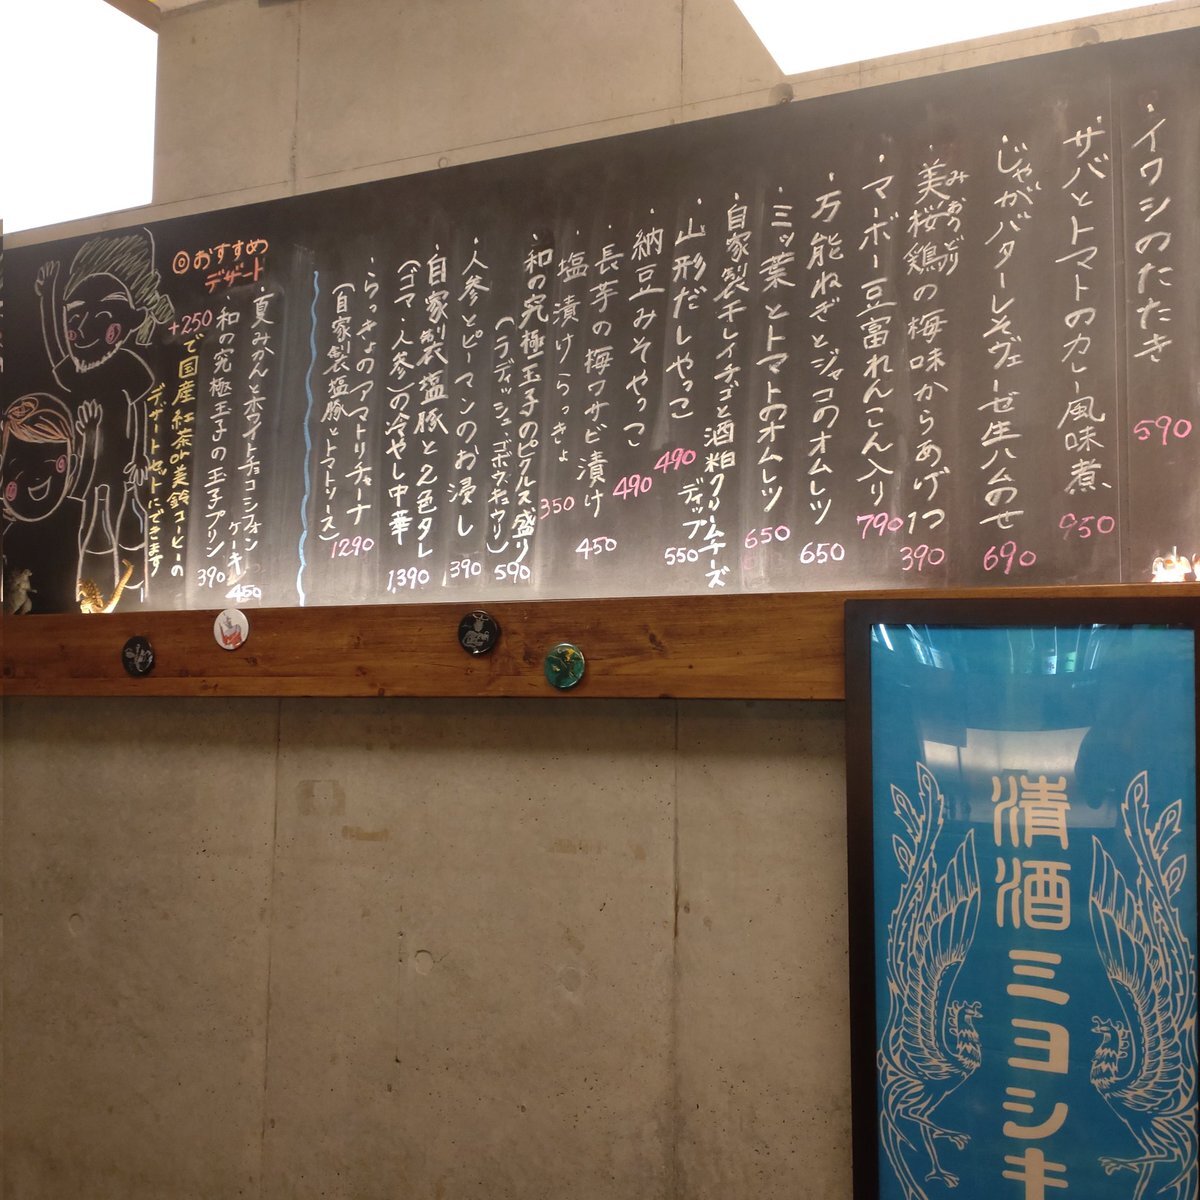 ・イワシのたたき 590
サバとトマトのカレー風味煮 950
・じゃがバターレモヴェーゼ生ハムのせ 690
・美桜鶏の梅味からあげ1つ 390
みおうどり
・マーボー豆富れんこん入り 790
・万能ねぎとジャコのオムレツ 650
・三ッ葉とトマトのオムレツ 650
・自家製干しイチゴと酒粕クリームチーズ
ディップ 550
・山形だしやっこ 490
・納豆みそやっこ 490
・長芋の梅ワサビ漬け 450
・塩漬けらっきょ 350
・和の究極玉子のピクルス盛り
(ラディッシュ・ゴボウ・キュウリ) 590
・人参とピーマンのお浸し 390
・自家製塩豚と2色タレ
(ゴマ・人参)の冷やし中華 1390
・らっきょのアマトリチャーナ
(自家製塩豚とトマトソース) 1290
◎おすすめ
デザート
・夏みかんとホワイトチョコシフォン
ケーキ 450
・和の究極玉子の玉子プリン 390
+250で国産紅茶or美鈴コーヒーの
デザートセットにできます
清酒ミヨシキ